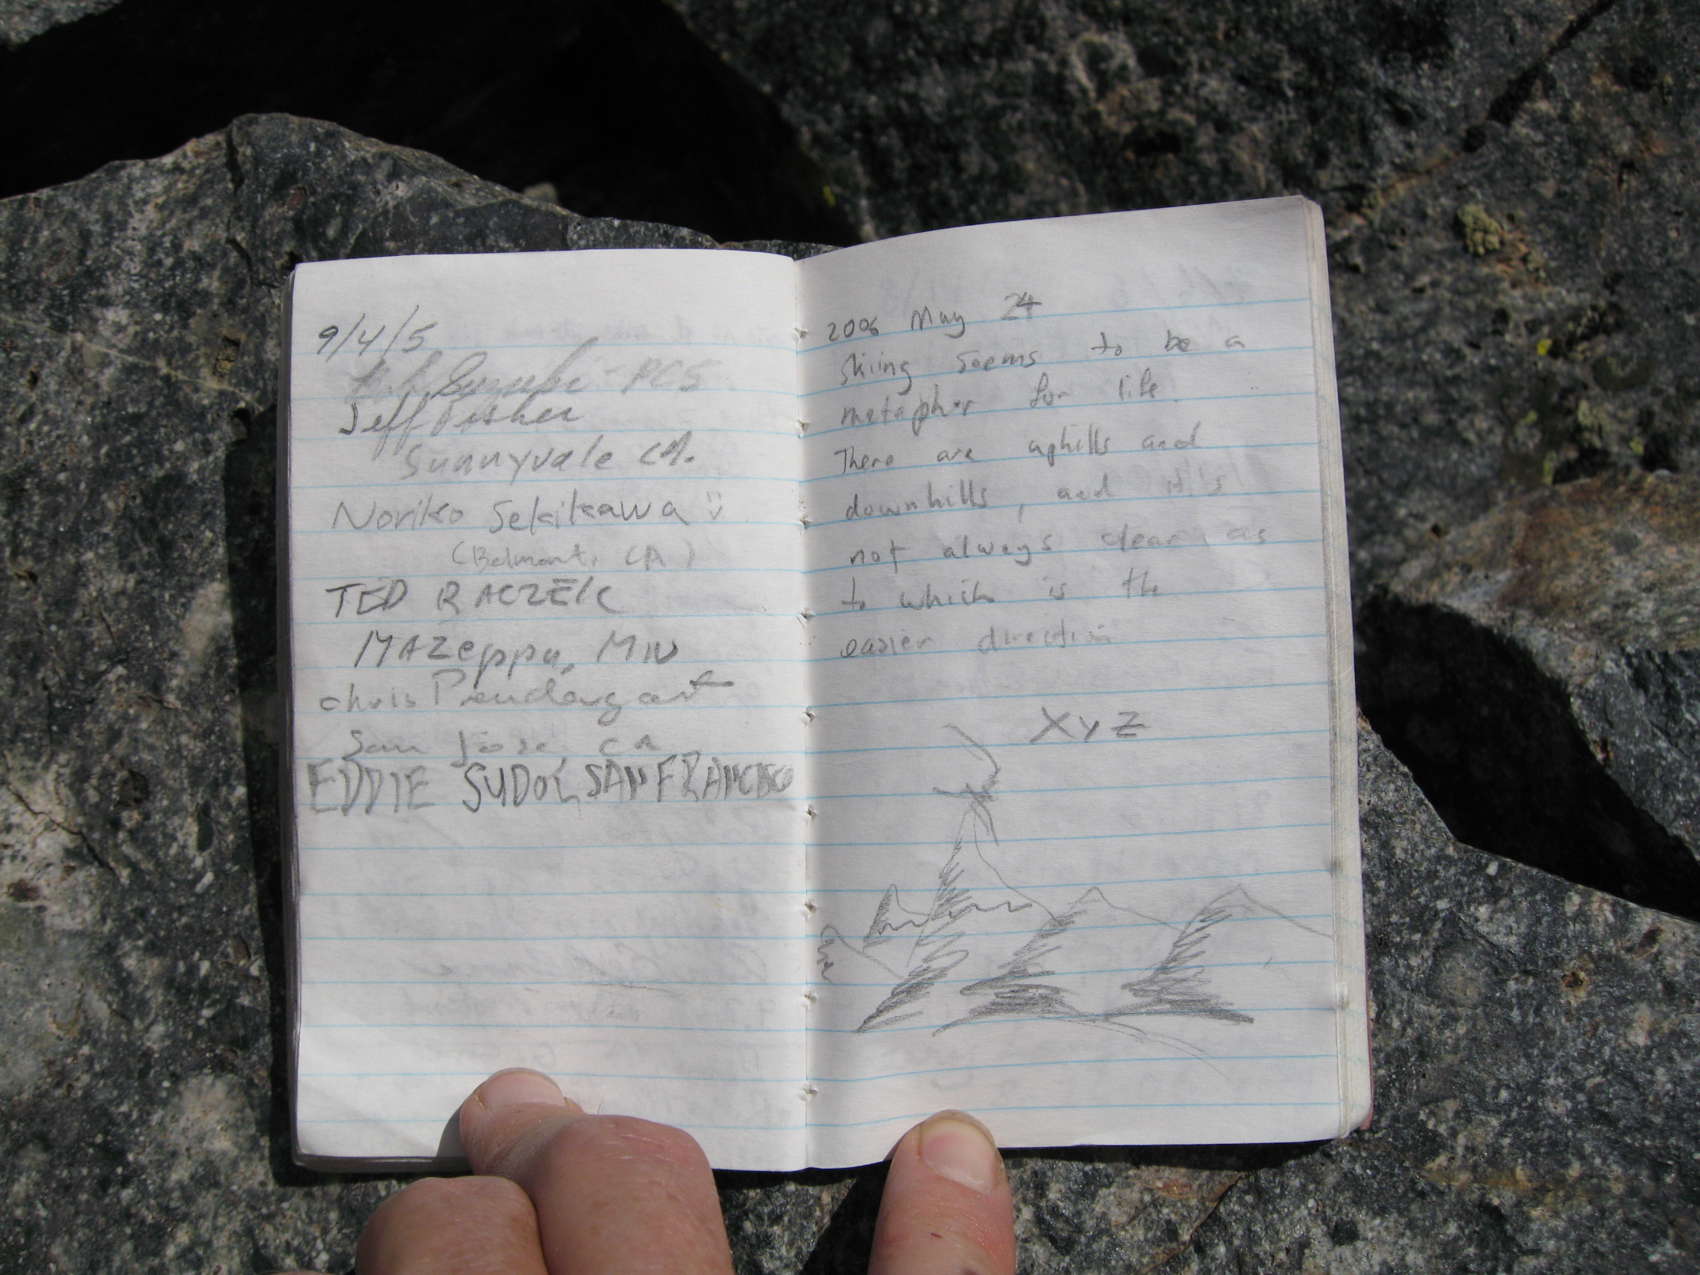 9/4/5
- PCS
Jeff Fisher
Sunnyvale CA.
Noriko Sekikawa
(Belmont, CA)
TED RACZEK
MAZeppa, MN
chris Prendergast
San Jose CA
EDDIE SUDOL SAN FRANCISCO
2006 May 24
Skiing seems to be a
metaphor for life.
There are uphills and
downhills, and it's
not always clear as
to which is the
easier direction
XYZ